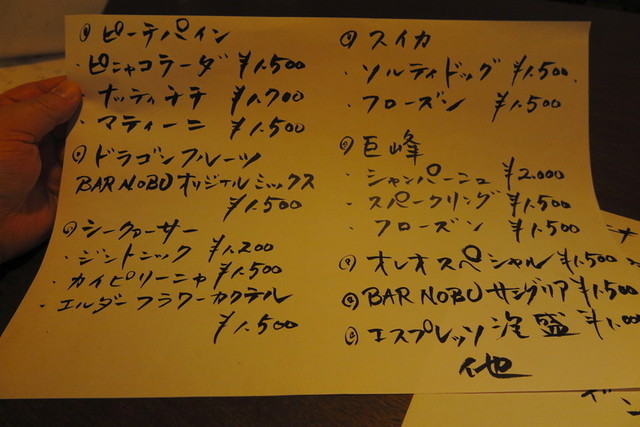 ピーチパイン
・ピニャコラーダ ¥1.500
・ナッティチチ ¥1.700
・マティーニ ¥1.500
ドラゴンフルーツ
BAR NOBU オリジナルミックス
¥1.500
シークァーサー
・ジントニック ¥1.200
・カイピリーニャ ¥1.500
・エルダーフラワーカクテル
¥1.500
スイカ
・ソルティドッグ ¥1.500
・フローズン ¥1.500
巨峰
・シャンパーニュ ¥2.000
・スパークリング ¥1.500
・フローズン ¥1.500
オレオスペシャル ¥1.500
BAR NOBU サングリア ¥1.500
エスプレッソ泡盛 ¥1.000
他